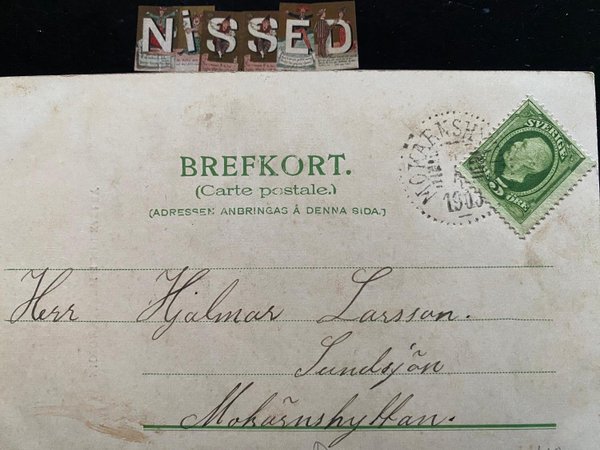 NiSSED
BREFKORT.
(Carte postale.)
(ADRESSEN ANBRINGAS Å DENNA SIDA.)
SVERIGE
5 ÖRE
1903
Herr Hjalmar Larsson.
Sundsjön
Mokärnshyttan.